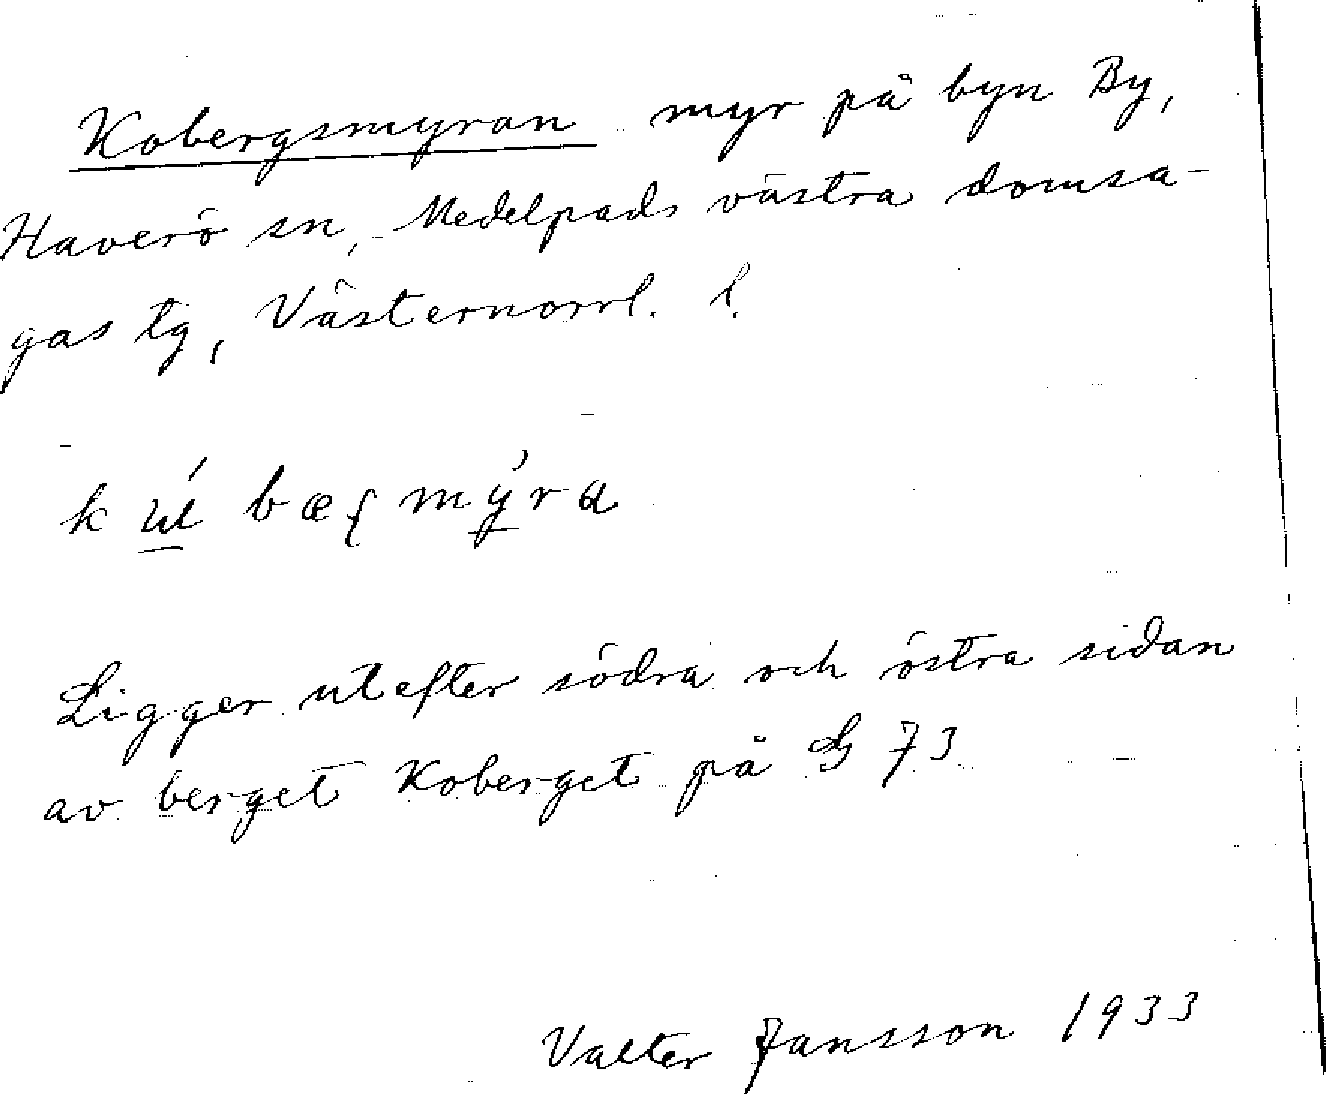 Kobergsmyran myr på byn By,
Haverö sn, Medelpads västra domsa-
gas tg, Västernorrl. l.
Ligger utefter södra och östra sidan
av berget Koberget på G 73
Valter Jansson 1933